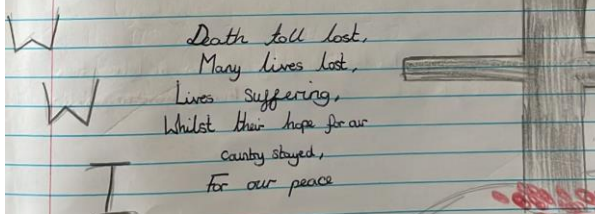 W
Death toll lost,
Many lives lost,
W
Lives suffering,
Whilst their hope for our
country stayed,
I
For our peace